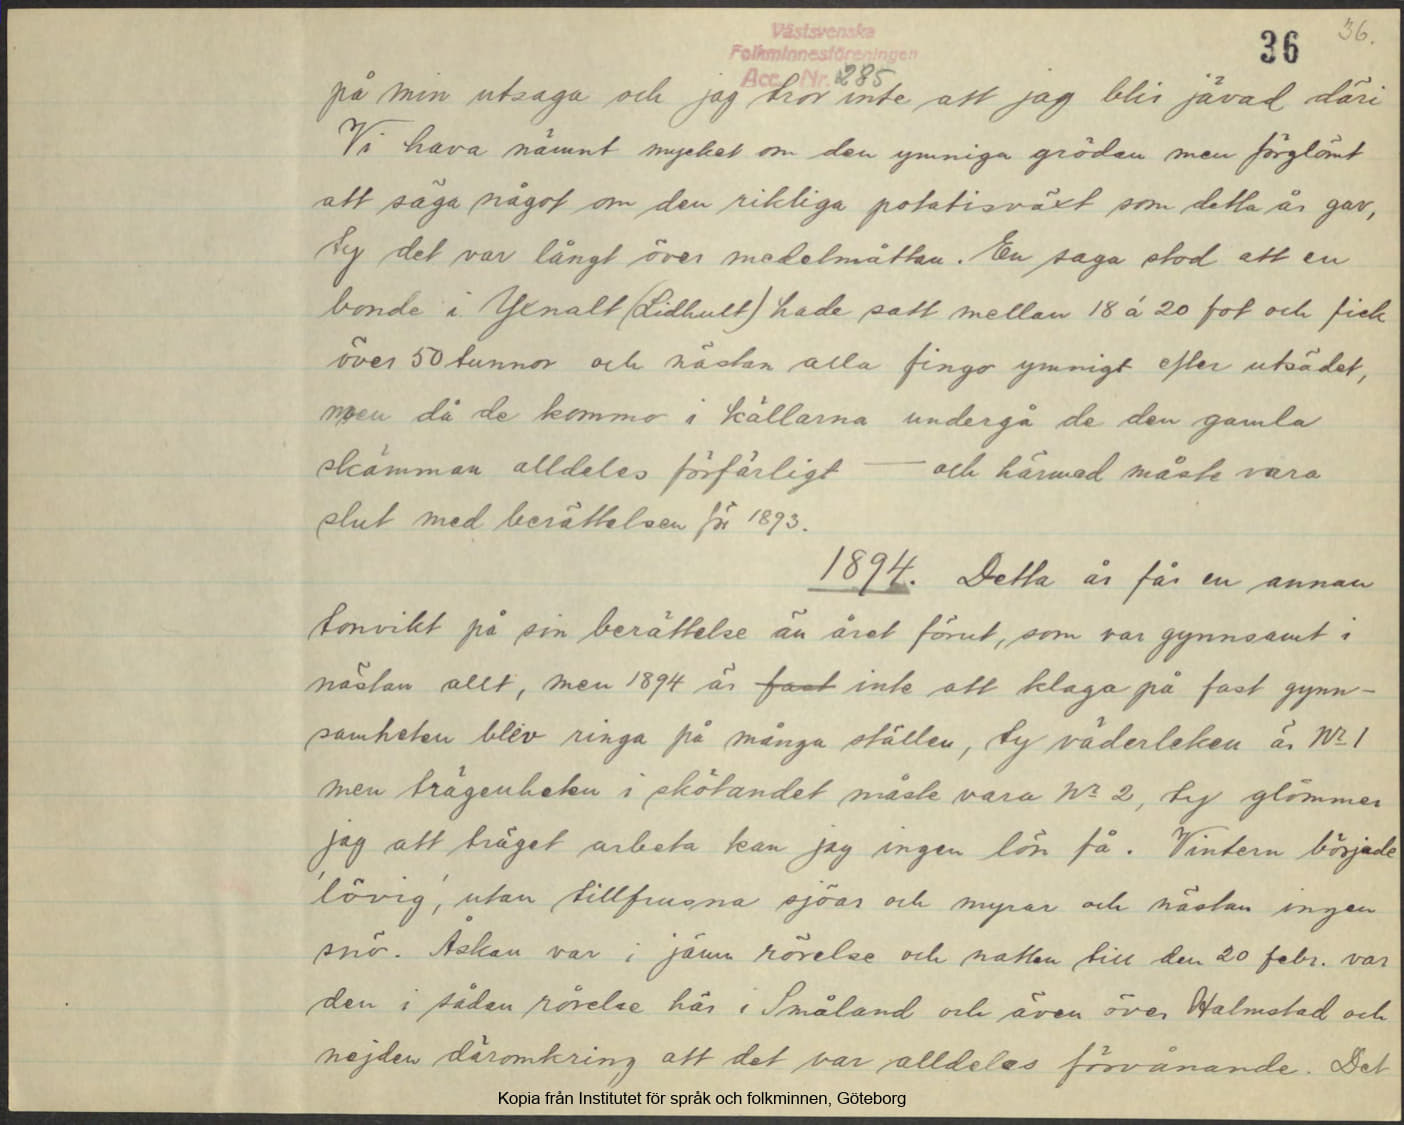 36.
36
Västsvenska
Folkminnesföreningen
Acc. Nr. 285
på min utsaga och jag tror inte att jag blir jävad däri
Vi hava nämnt mycket om den ymniga grödan men förglömt
att säga något om den rikliga potatisväxt som detta år gav,
ty det var långt över medelmåttan. En saga stod att en
bonde i Yxnalt (Lidhult) hade satt mellan 18 á 20 fot och fick
över 50 tunnor och nästan alla fingo ymnigt efter utsädet,
men då de kommo i källarna undergå de den gamla
skämman alldeles förfärligt — och härmed måste vara
slut med berättelsen för 1893.
1894. Detta år får en annan
tonvikt på sin berättelse än året förut, som var gynnsamt i
nästan allt, men 1894 är fast inte att klaga på fast gynn-
samheten blev ringa på många ställen, ty väderleken är Nr 1
men trägenheten i skötandet måste vara Nr 2, ty glömmer
jag att träget arbeta kan jag ingen lön få. Vintern började
'lövig', utan tillfrusna sjöar och myrar och nästan ingen
snö. Åskan var i jämn rörelse och natten till den 20 febr. var
den i sådan rörelse här i Småland och även över Halmstad och
nejden däromkring att det var alldeles förvånande. Det
Kopia från Institutet för språk och folkminnen, Göteborg